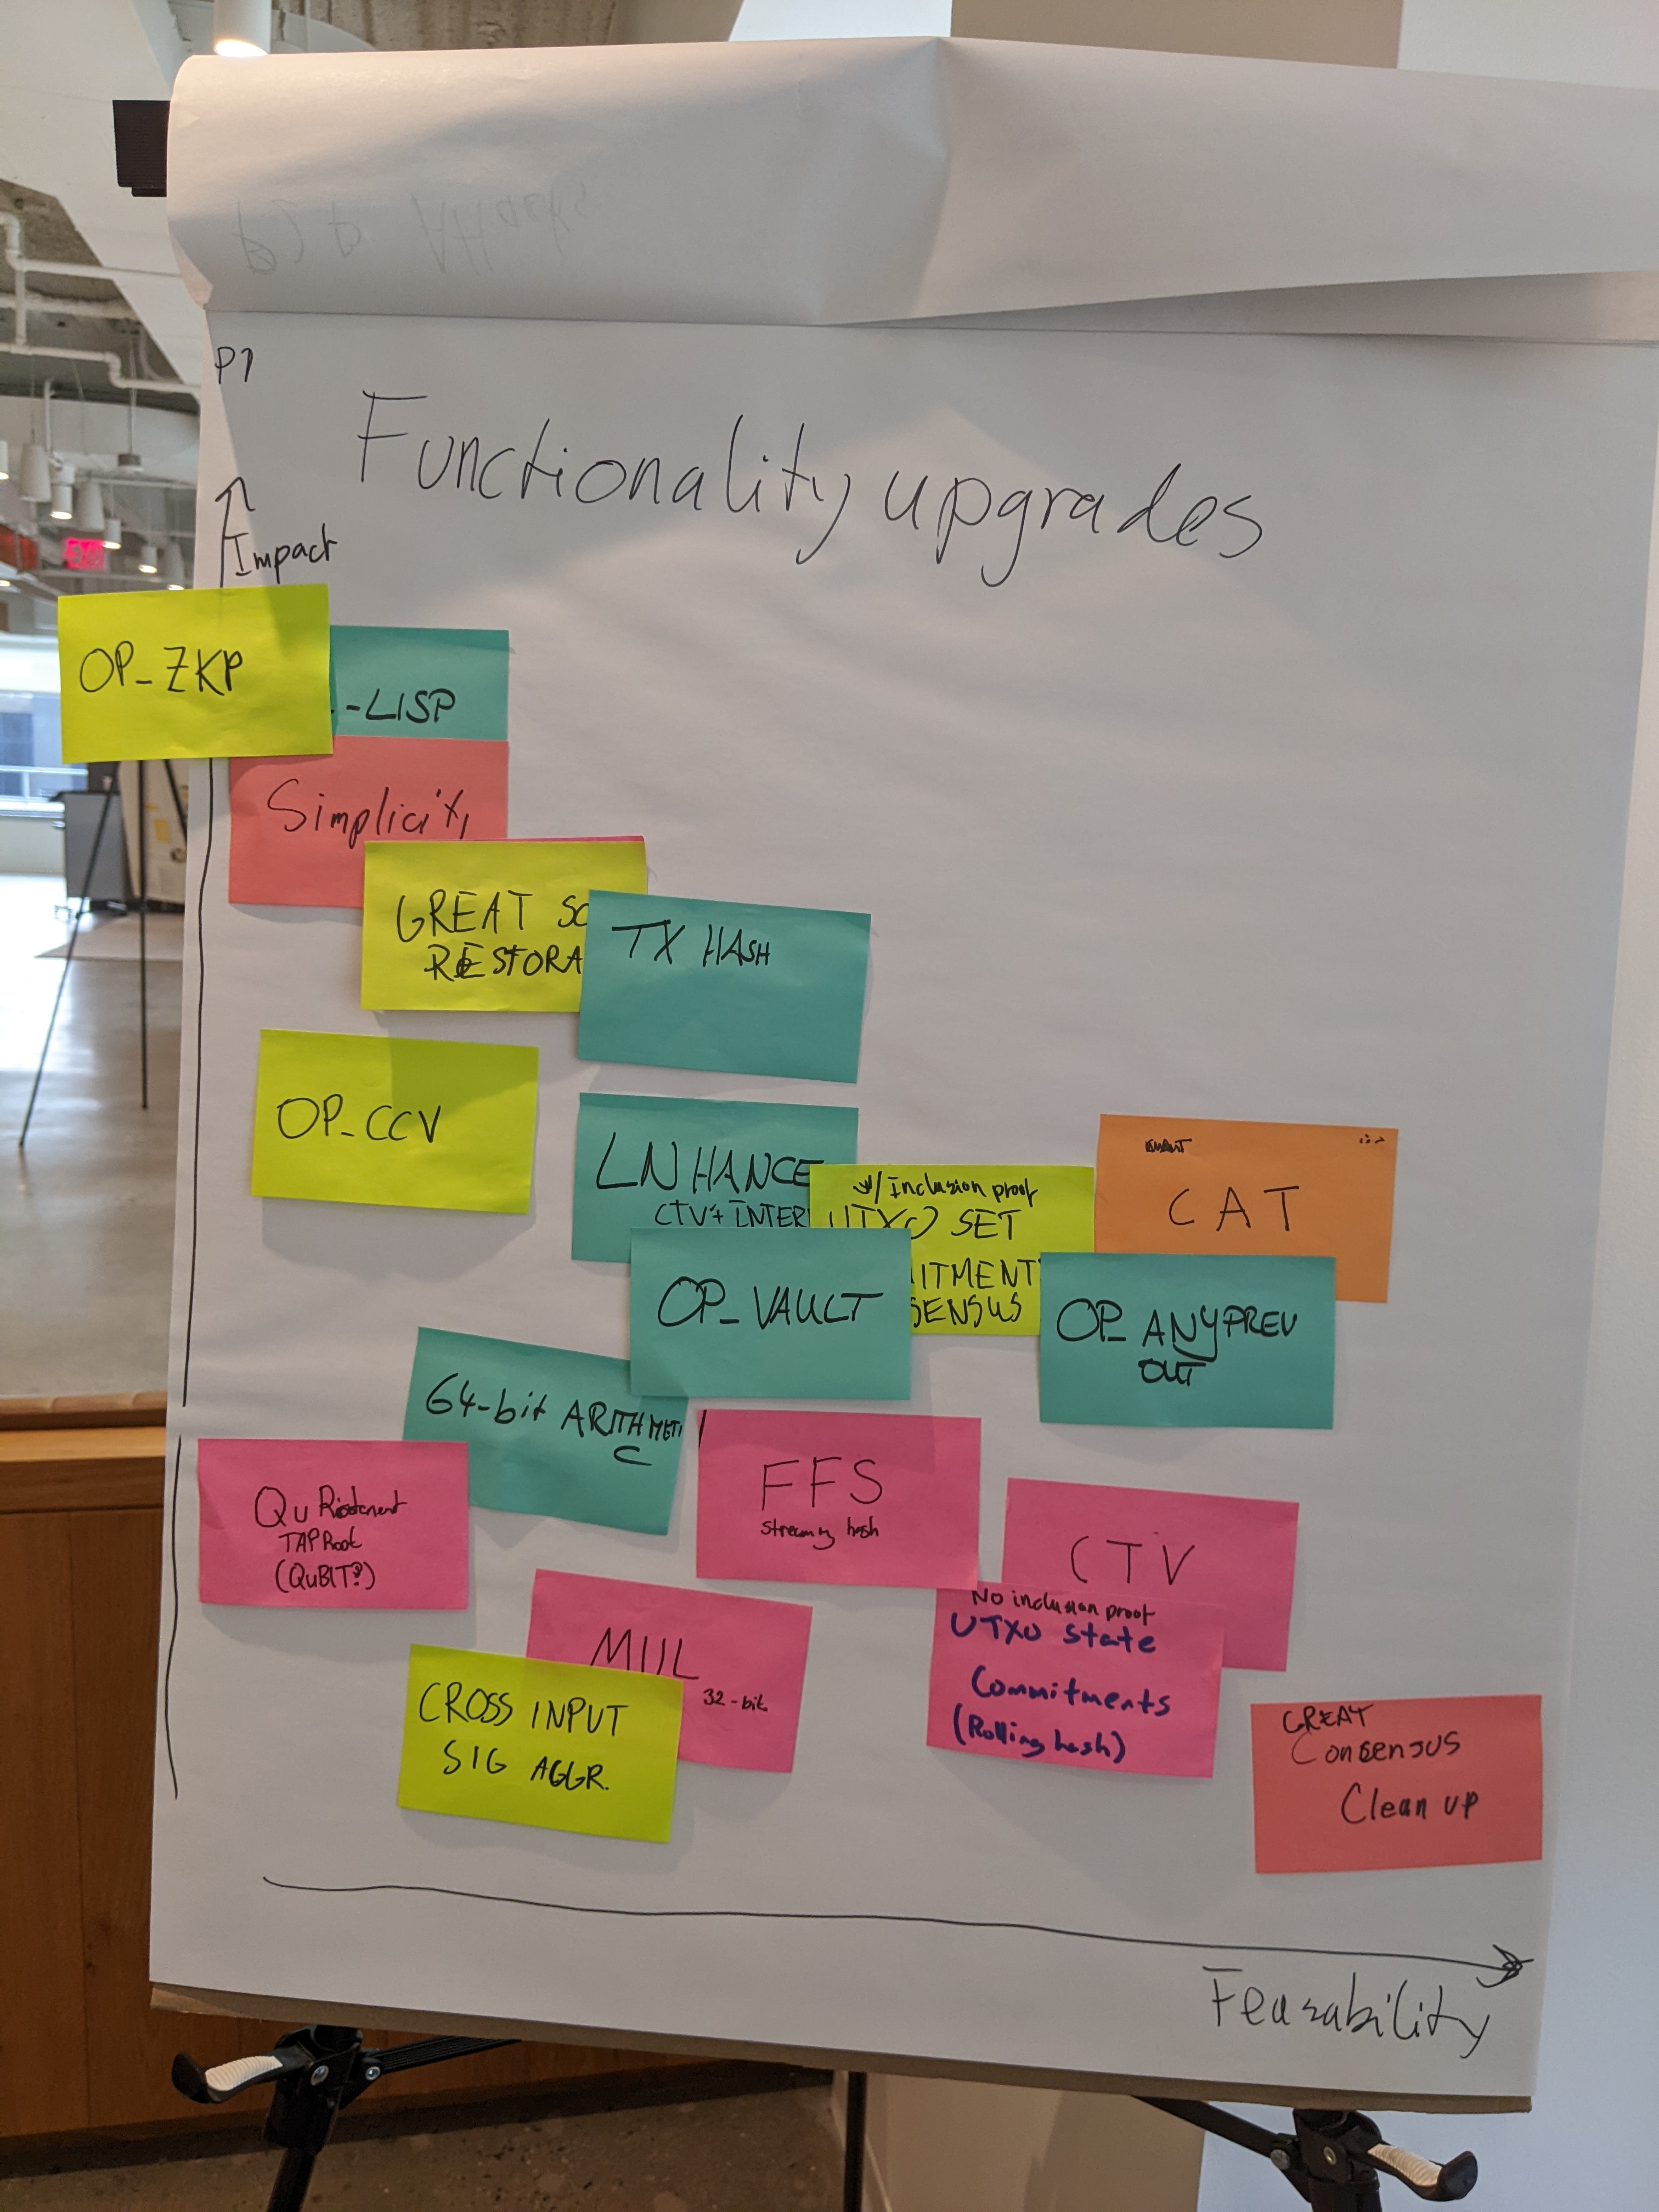 P1
Functionality upgrades
Impact
EXIT
OP_ZKP
-LISP
Simplicity
GREAT SC
RESTORA
TX HASH
OP_CCV
LNHANCE
CTV+ INTER
w/ Inclusion proof
UTXO SET
ITMENT
SENSUS
CAT
OP_VAULT
OP_ANYPREV
OUT
64-bit ARITHMETI
C
FFS
streaming hash
Qu
TAPRoot
(QuBIT?)
CTV
MUL
32-bit
No inclusion proof
UTXO State
Commitments
(Rolling hash)
CROSS INPUT
SIG AGGR.
GREAT
Consensus
Clean up
Feasability